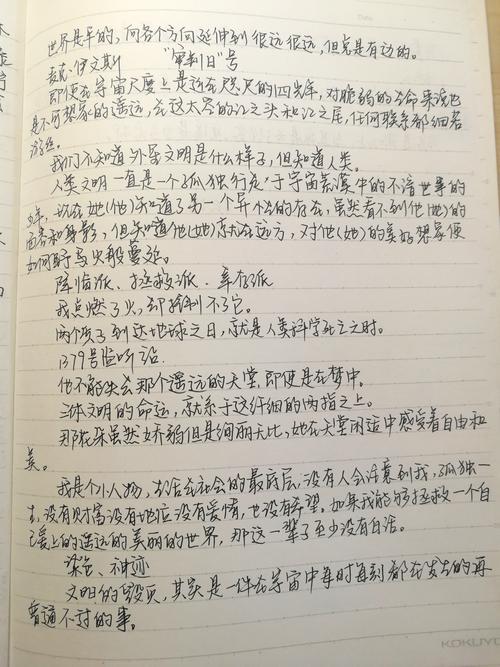 世界是平的,向各个方向延伸到很远很远,但总是有边的。
麦克·伊文斯 “审判日”号
即使在宇宙尺度上是近在咫尺的四光年,对脆弱的生命来说也
是不可想象的遥远,在这太空的江之头和江之尾,任何联系都细若
游丝。
我们不知道外星文明是什么样子,但知道人类。
人类文明一直是一个孤独行走于宇宙荒漠中的不谙世事的
少年,现在她(他)知道了另一个异性的存在,虽然看不到他(她)的
面容和身影,但知道他(她)就在远方,对他(她)的美好想象便
如同野火般蔓延。
降临派、拯救派、幸存派
我点燃了火,却控制不了它。
两个质子到达地球之日,就是人类科学死亡之时。
1379号监听站
他不能失去那个遥远的天堂,即使是在梦中。
三体文明的命运,就系于这纤细的两指之上。
那花朵虽然娇弱但是绚丽无比,她在天堂闲适中感受着自由和
美。
我是个小人物,生活在社会的最底层,没有人会注意到我,孤独一
生,没有财富没有地位没有爱情,也没有希望。如果我能够拯救一个自
己爱上的遥远的美丽的世界,那这一辈子至少没有白活。
染色、神迹
文明的毁灭,其实是一件在宇宙中每时每刻都在发生的再
普通不过的事。
KOKUYO